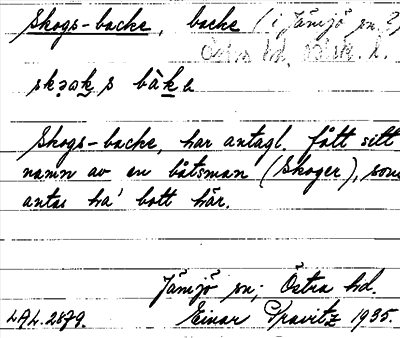 Skogs-backe, backe (i Jämjö sn.?)
Östra hd.
bàka
Skogs-backe, har antagl. fått sitt
namn av en båtsman (Skoger), som
antas ha' bott här.
Jämjö sn; Östra hd.
LAL. 2879. Einar Pravitz 1935.